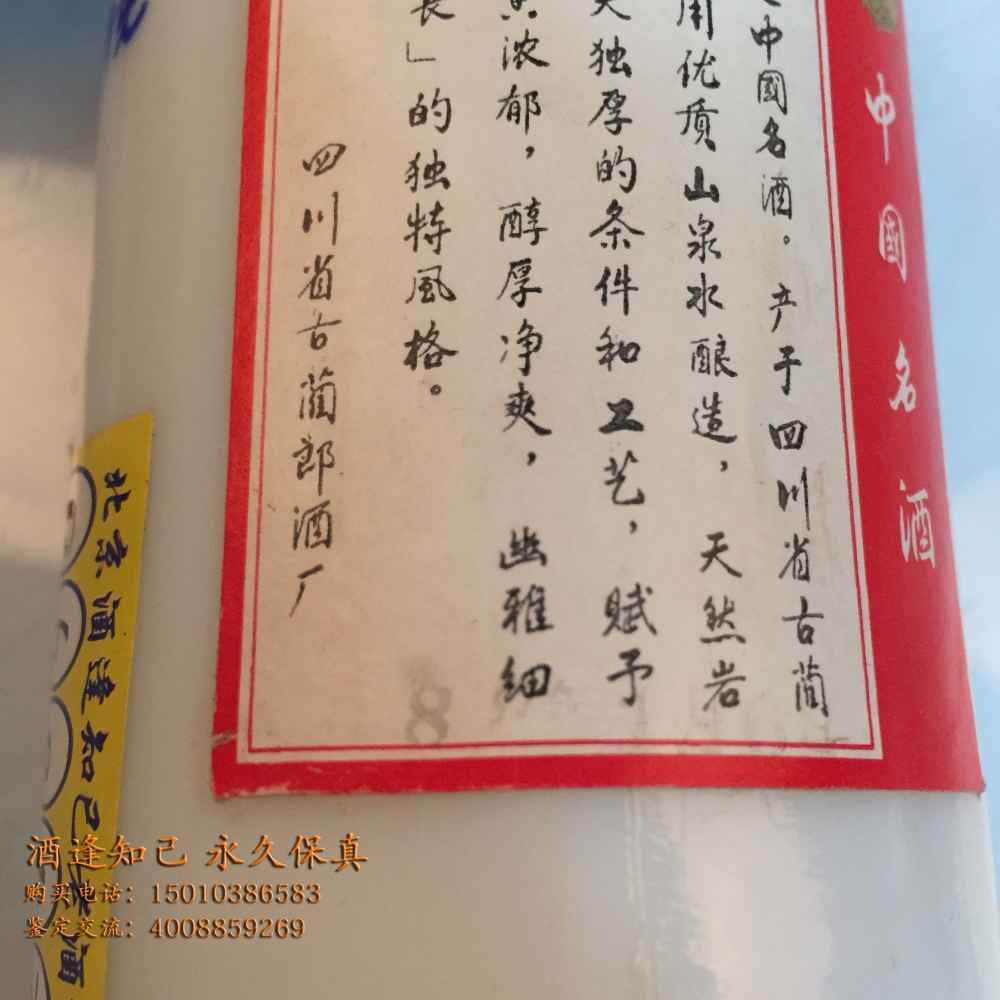 中國名酒
中國名酒。产于四川省古蔺
用优质山泉水酿造，天然岩
天独厚的条件和工艺，赋予
浓郁，醇厚净爽，幽雅细
」的独特風格。
四川省古蔺郎酒厂
8
北京酒逢知己老酒
酒逢知己 永久保真
购买电话：15010386583
鉴定交流：4008859269